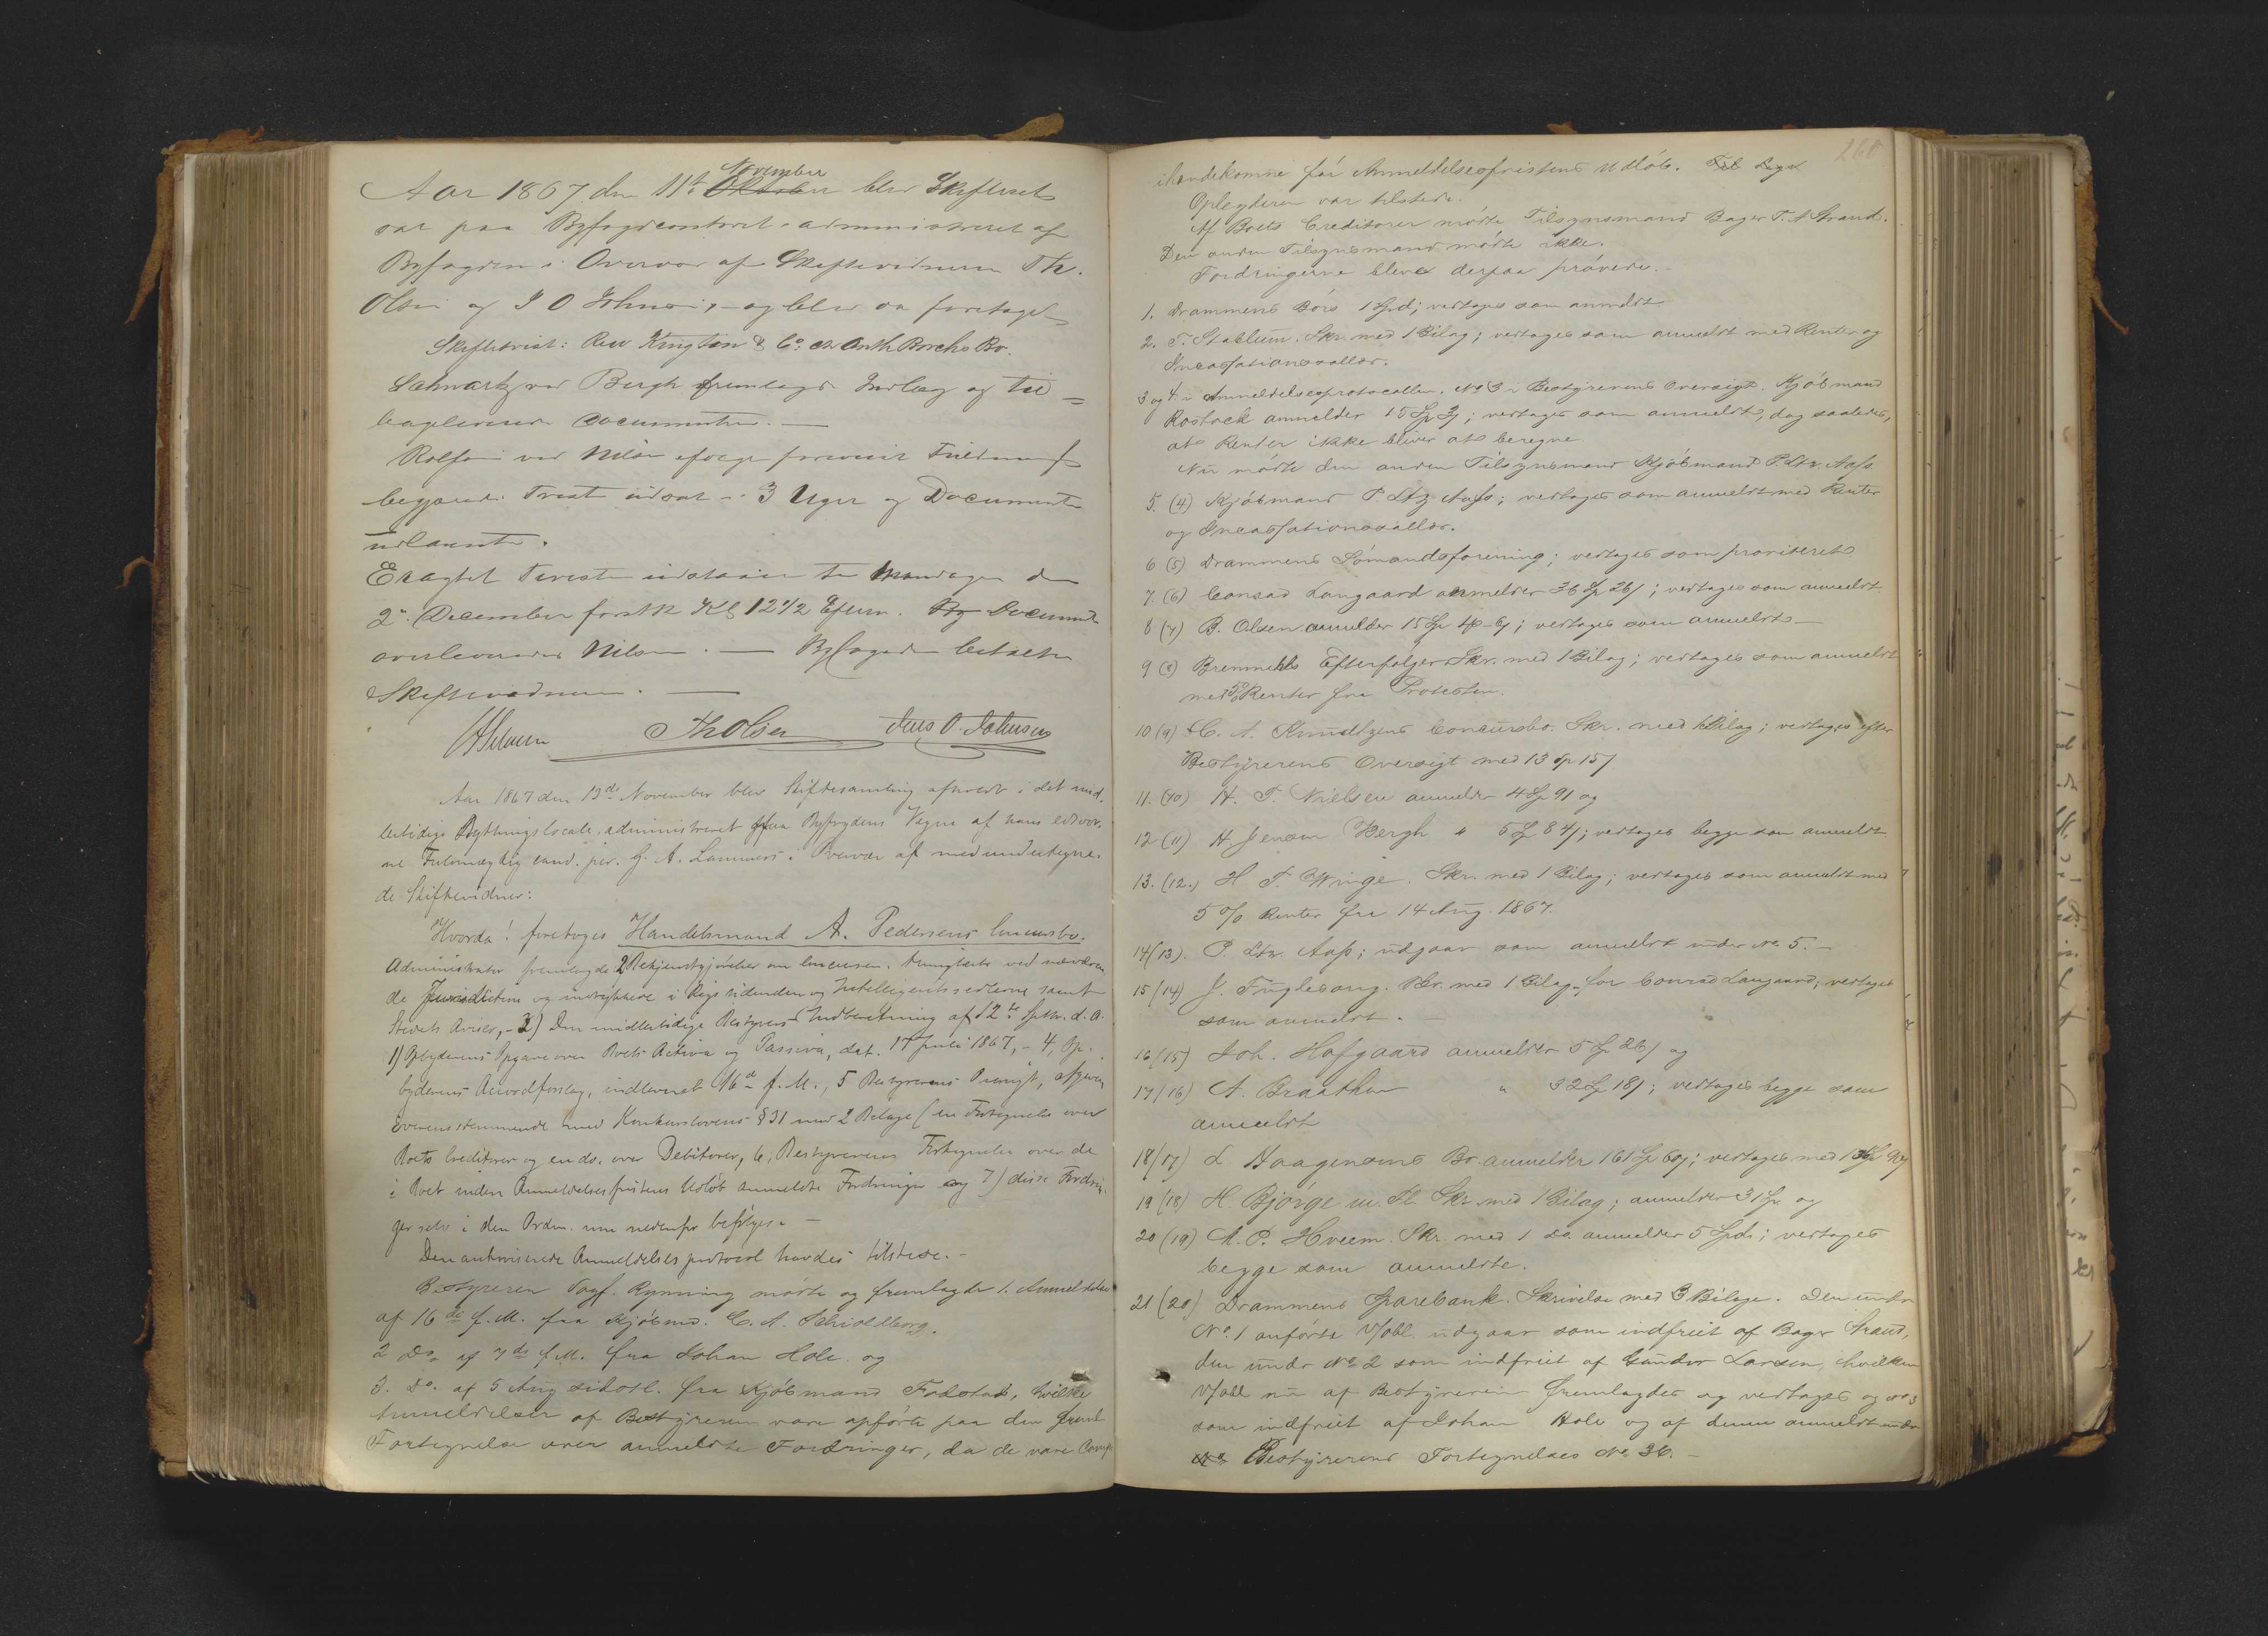 November
Aar 1867 den 11te Oktober blev Skifteret
sat paa Byfogedcontoret administreret af
Byfogden i Overvær af Skiftevidnerne Th.
Olsen og J O Johnsen, og blev da foretaget
Skiftetvist: Kington & Co ctr Anth Borchs Bo.
Schwartz ved Bergh fremlagde Indlæg og til=
bageleverede Documenterne. —
Rolfsen ved Nilsen ifølge forevist Fuldmagt
begjærede Tvisten udsat i 3 Uger og Documenterne
udlaante.
Eragtet Tvisten udstaaer til Mandagen den
2den December førstk Kl 12 1/2 Efterm. Documenterne
overleveredes Nilsen. — Byfogden betalte
Skiftevidnerne. —
Th Olsen Jens O. Johnsen
Aar 1867 den 13de November blev Skiftesamling afholdt i det mid-
lertidige Bythingslocale, administreret paa Byfogdens Vegne af hans edsvor-
ne Fuldmægtig cand. jur. G. A. Lammers i Overvær af medundertegne-
de Skiftevidner:
Hvorda! foretoges Handelsmand A. Pedersens Concursbo.
Administrator fremlagde 2 Bekjendtgjørelser om Concursen, ved nærværen
de Jurisdiction og indrykkede i Rigstidenden og Intelligentssedlerne samt
Stedets Aviser, - 2) Den midlertidige Bestyrers Indberetning af 12te Septbr. d. A.
Opbyderens Opgave over Boets Activa og Passiva, dat. 17 Juli 1867, - 4, Op-
byderens Accordforslag, indleveret 16de f. M., 5 Bestyrerens Oversigt, afgiven
overensstemmende med Konkurslovens § 31 med 2 Bilage (en Fortegnelse over
Boets Creditorer og en do. over Debitorer, 6, Bestyrerens Fortegnelse over de
i Boet inden Anmeldelsesfristens Udløb anmeldte Fordringer og 7) disse Fordrin-
ger selv i den Orden som nedenfor befølges. —
Den autoriserede Anmeldelsesprotocol havdes tilstede. -
Bestyreren Sagf. Rynning mødte og fremlagde 1. Anmeldelse
af 16de f. M. fra Kjøbmd. C. A. Schioldborg.
2 Do af 7de f. M. fra Johan Hole og
3. Do. af 5 Aug sidstl. fra Kjøbmand Fokstad, hvilke
Anmeldelser af Bestyreren vare opførte paa den freml.
Fortegnelse over anmeldte Fordringer, da de vare ham
260
ihændekomne før Anmeldelsesfristens Udløb.
Opbyderen var tilstede.
Af Boets Creditorer mødte Tilsynsmand Bager P. A Strand.
Den anden Tilsynsmand mødte ikke.
Fordringerne bleve derpaa prøvede. -
1. Drammens Børs 1 Spd; vedtages som anmeldt.
2. T. Stablum. Skr. med 1 Bilag; vedtages som anmeldt med Renter og
Incassationssallær.
3 og 4 i Anmeldelsesprotocollen. No 3 i Bestyrerens Oversigt. Kjøbmand
Rostock anmelder 15 Sp; vedtages som anmeldt, dog saaledes,
at Renter ikke bliver at beregne
Nu mødte den anden Tilsynsmand Kjøbmand P. Ltz. Aass
5. (4) Kjøbmand P. Ltz Aass; vedtages som anmeldt med Renter
og Incassationssallær.
6 (5) Drammens Sømandsforening; vedtages som prioriteret
7. (6) Conrad Langaard anmelder 36 Sp 26 ß; vedtages som anmeldt
8 (7) B. Olsen anmelder 15 Sp; vedtages som anmeldt —
9 (8) Bremmehls Efterfølger Skr. med 1 Bilag; vedtages som anmeldt
med 5% Renter fra Protesten.
10 (9) C. A. Knudtzens Concursbo. Skr. med 1 Bilag; vedtages efter
Bestyrerens Oversigt med 13 Sp 15 ß
11. (10) H. P. Nielsen anmelder 4 Sp 91 og
12 (11) H Jensen Bergh " 5 Sp 84 ß; vedtages begge som anmeldt
13. (12.) H. P. Winge. Skr. med 1 Bilag; vedtages som anmeldt med
5 % Renter fra 14 Aug. 1867.
14 (13). P. Ltz. Aass; udgaar som anmeldt under No 5. —
15 (14) J. Fuglesang. Skr. med 1 Bilag for Conrad Langaard; vedtages
som anmeldt. —
16 (15) Joh. Hofgaard anmelder 5 Sp 26 ß og
17 (16) A. Braathen " 32 Sp 18 ß; vedtages begge som
anmeldt
18 (17) L Haagensens Bo. anmelder 161 Sp 60 ß; vedtages med
19 (18) H. Bjørge Skr. med 1 Bilag; anmelder 31 Sp. og
20 (19) A. P. Hveem. Skr. med 1 do. anmelder 5 Spd.; vedtages
begge som anmeldte.
21 (20) Drammens Sparebank. Skrivelse med 3 Bilage. Den under
No. 1 anførte V/obl. udgaar som indfriet af Bager Strand,
den under No 2 som indfriet af Gunder Larsen, hvilken
V/obl nu af Bestyreren fremlagdes og vedtages og No 3
som indfriet af Johan Hole og af denne anmeldt under
Bestyrerens Fortegnelses No. 36. —